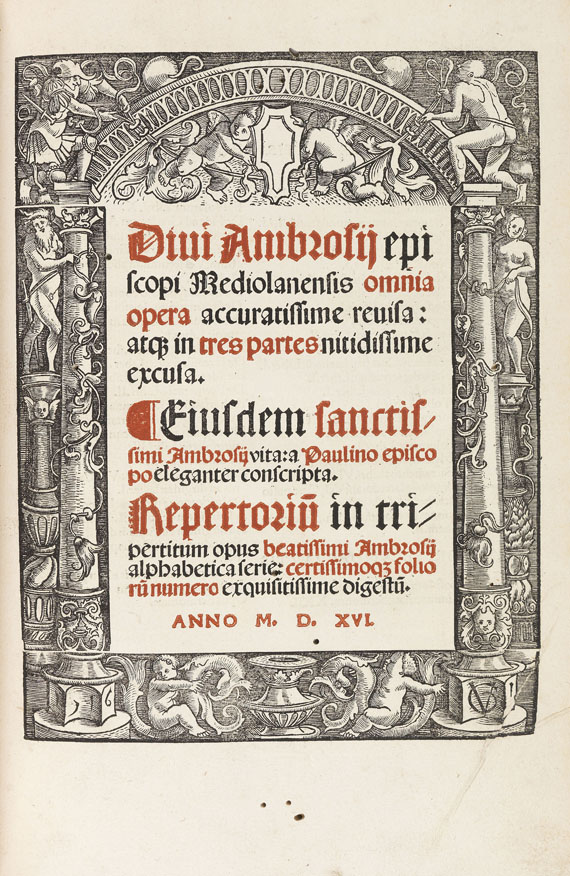 Diui Ambrosij epi
scopi Mediolanensis omnia
opera accuratissime reuisa:
atqꝫ in tres partes nitidissime
excusa.
¶Eiusdem sanctis⸗
simi Ambrosij vita: a Paulino episco
po eleganter conscripta.
Repertoriū in tri⸗
pertitum opus beatissimi Ambrosij
alphabetica serie: certissimoqꝫ folio
rū numero exquisitissime digestū.
ANNO M. D. XVI.
VG